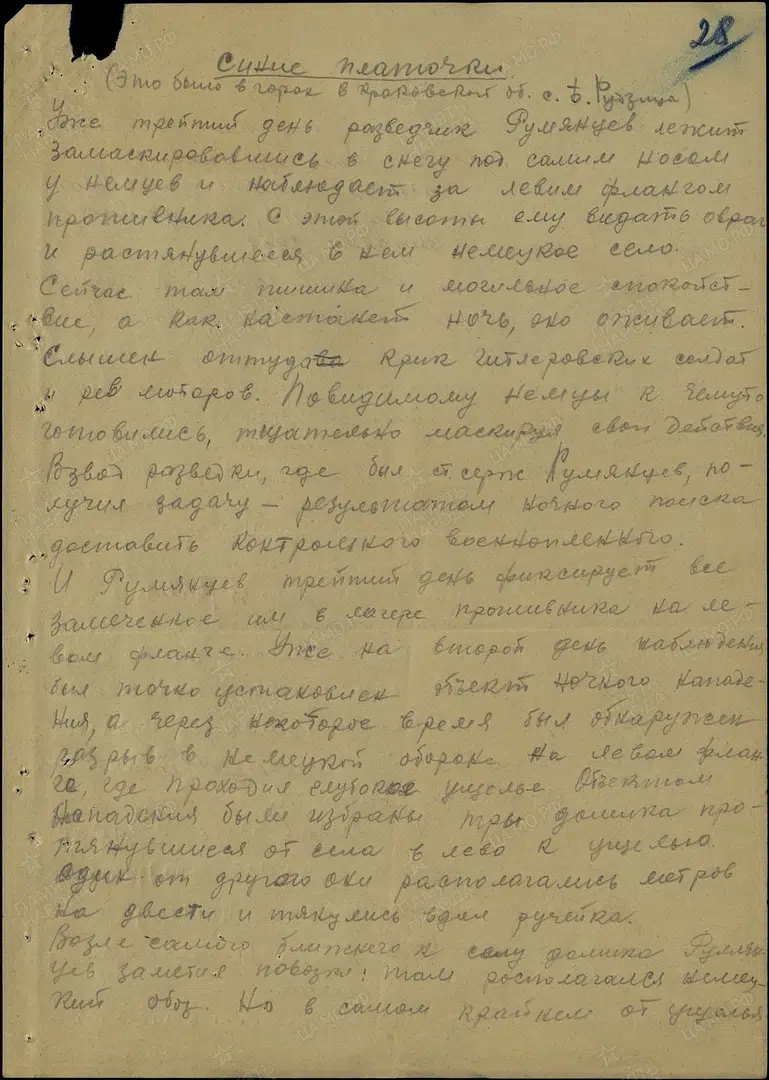 28
Синие платочки
(Это было в горах в Краковской об. с. Б. Рудзица)
Уже третий день разведчик Румянцев лежит
замаскировавшись в снегу под самим носом
у немцев и наблюдает за левим флангом
противника. С этой высоты ему видать овраг
и растянувшееся в нем немецкое село.
Сейчас там тишина и могильное спокойст-
вие, а как настанет ночь, оно оживает.
Слышен оттуда крик гитлеровских солдат
и рев моторов. Повидимому немцы к чемуто
готовились, тщательно маскируя свои действия.
Взвод разведки, где был ст. серж Румянцев, по-
лучил задачу – результатом ночного поиска
доставить контрольного военнопленного.
И Румянцев третий день фиксирует все
замеченное им в лагере противника на ле-
вом фланге. Уже на второй день наблюдения
был точно установлен объект ночного нападе-
ния, а через некоторое время был обнаружен
разрыв в немецкой обороне на левом флан-
ге, где проходил глубокое ущелье. Объектом
нападения были избраны три домика про-
тянувшиеся от села в лево к ущелью.
один от другого они располагались метров
на двести и тянулись вдол ручейка.
Возле самого ближнего к селу домика Румян-
цев заметил повозки: там располагался немец-
кий обоз. Но в самом крайнем от ущелья